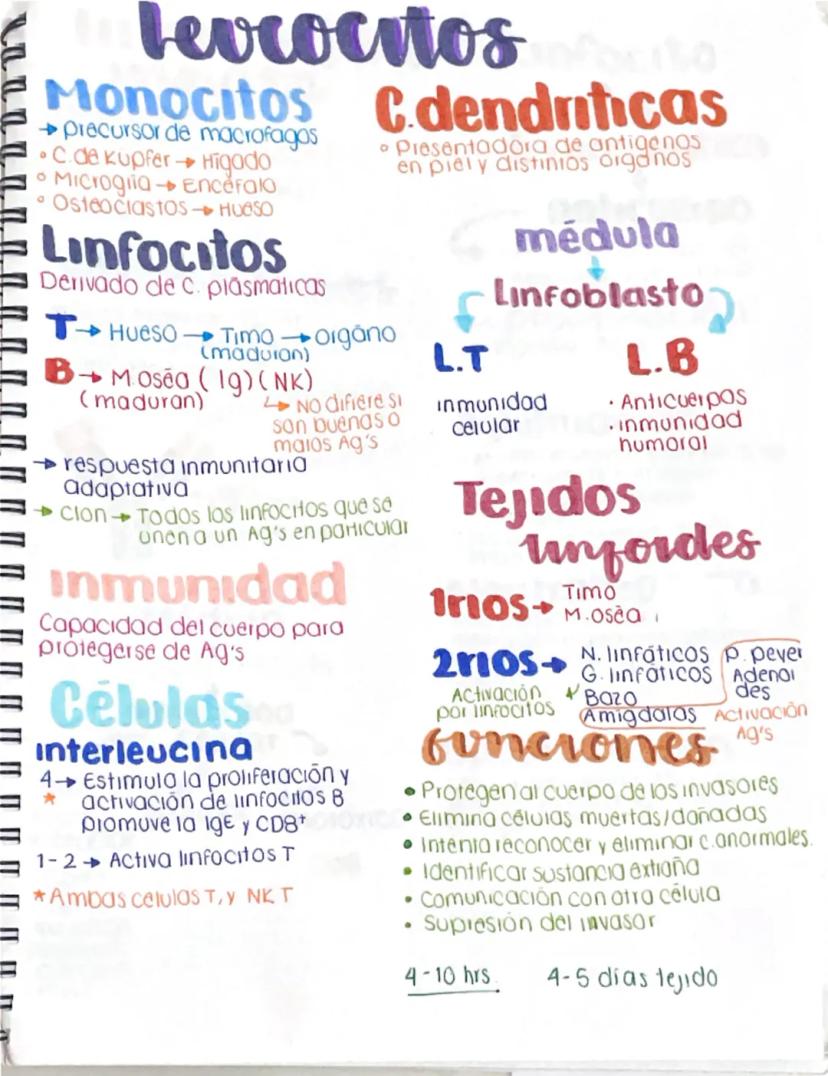 Leucocitos
Monocitos
→ precursor de macrofagos
° C. de Kupfer → Hígado
° Microglia → Encéfalo
° Osteoclastos → Hueso
C. dendriticas
° Presentadora de antigenos
en piel y distintos organos
Linfocitos
Derivado de C. plasmaticas
T → Hueso → Timo → orgáno
(maduran)
B → M. oséa ( Ig) ( NK)
(maduran)
↳ No difiere si
son buenas o
malos Ag's
→ respuesta inmunitaria
adaptativa
→ Clon → Todos los linfocitos que se
unen a un Ag's en particular
médula
Linfoblasto
L.T
inmunidad
celular
L.B
· Anticuerpos
· inmunidad
humoral
Inmunidad
Capacidad del cuerpo para
protegerse de Ag's
Tejidos
linfoides
1rios → Timo
M. oséa
2rios → N. linfáticos
G. linfáticos
Bazo
Amigdalas
P. peyer
Adenoi
des
Activación
por linfocitos
Activación
Ag's
Células
interleucina
4 → Estimula la proliferación y
* activación de linfocitos B
promueve la IgE y CD8+
1-2 → Activa linfocitos T
* Ambas celulas T, y NK T
funciones
• Protegen al cuerpo de los invasores
• Elimina células muertas/dañadas
• Intenta reconocer y eliminar c. anormales.
• Identificar sustancia extraña
• Comunicación con otra célula
• Supresión del invasor
4-10 hrs.
4-5 días tejido